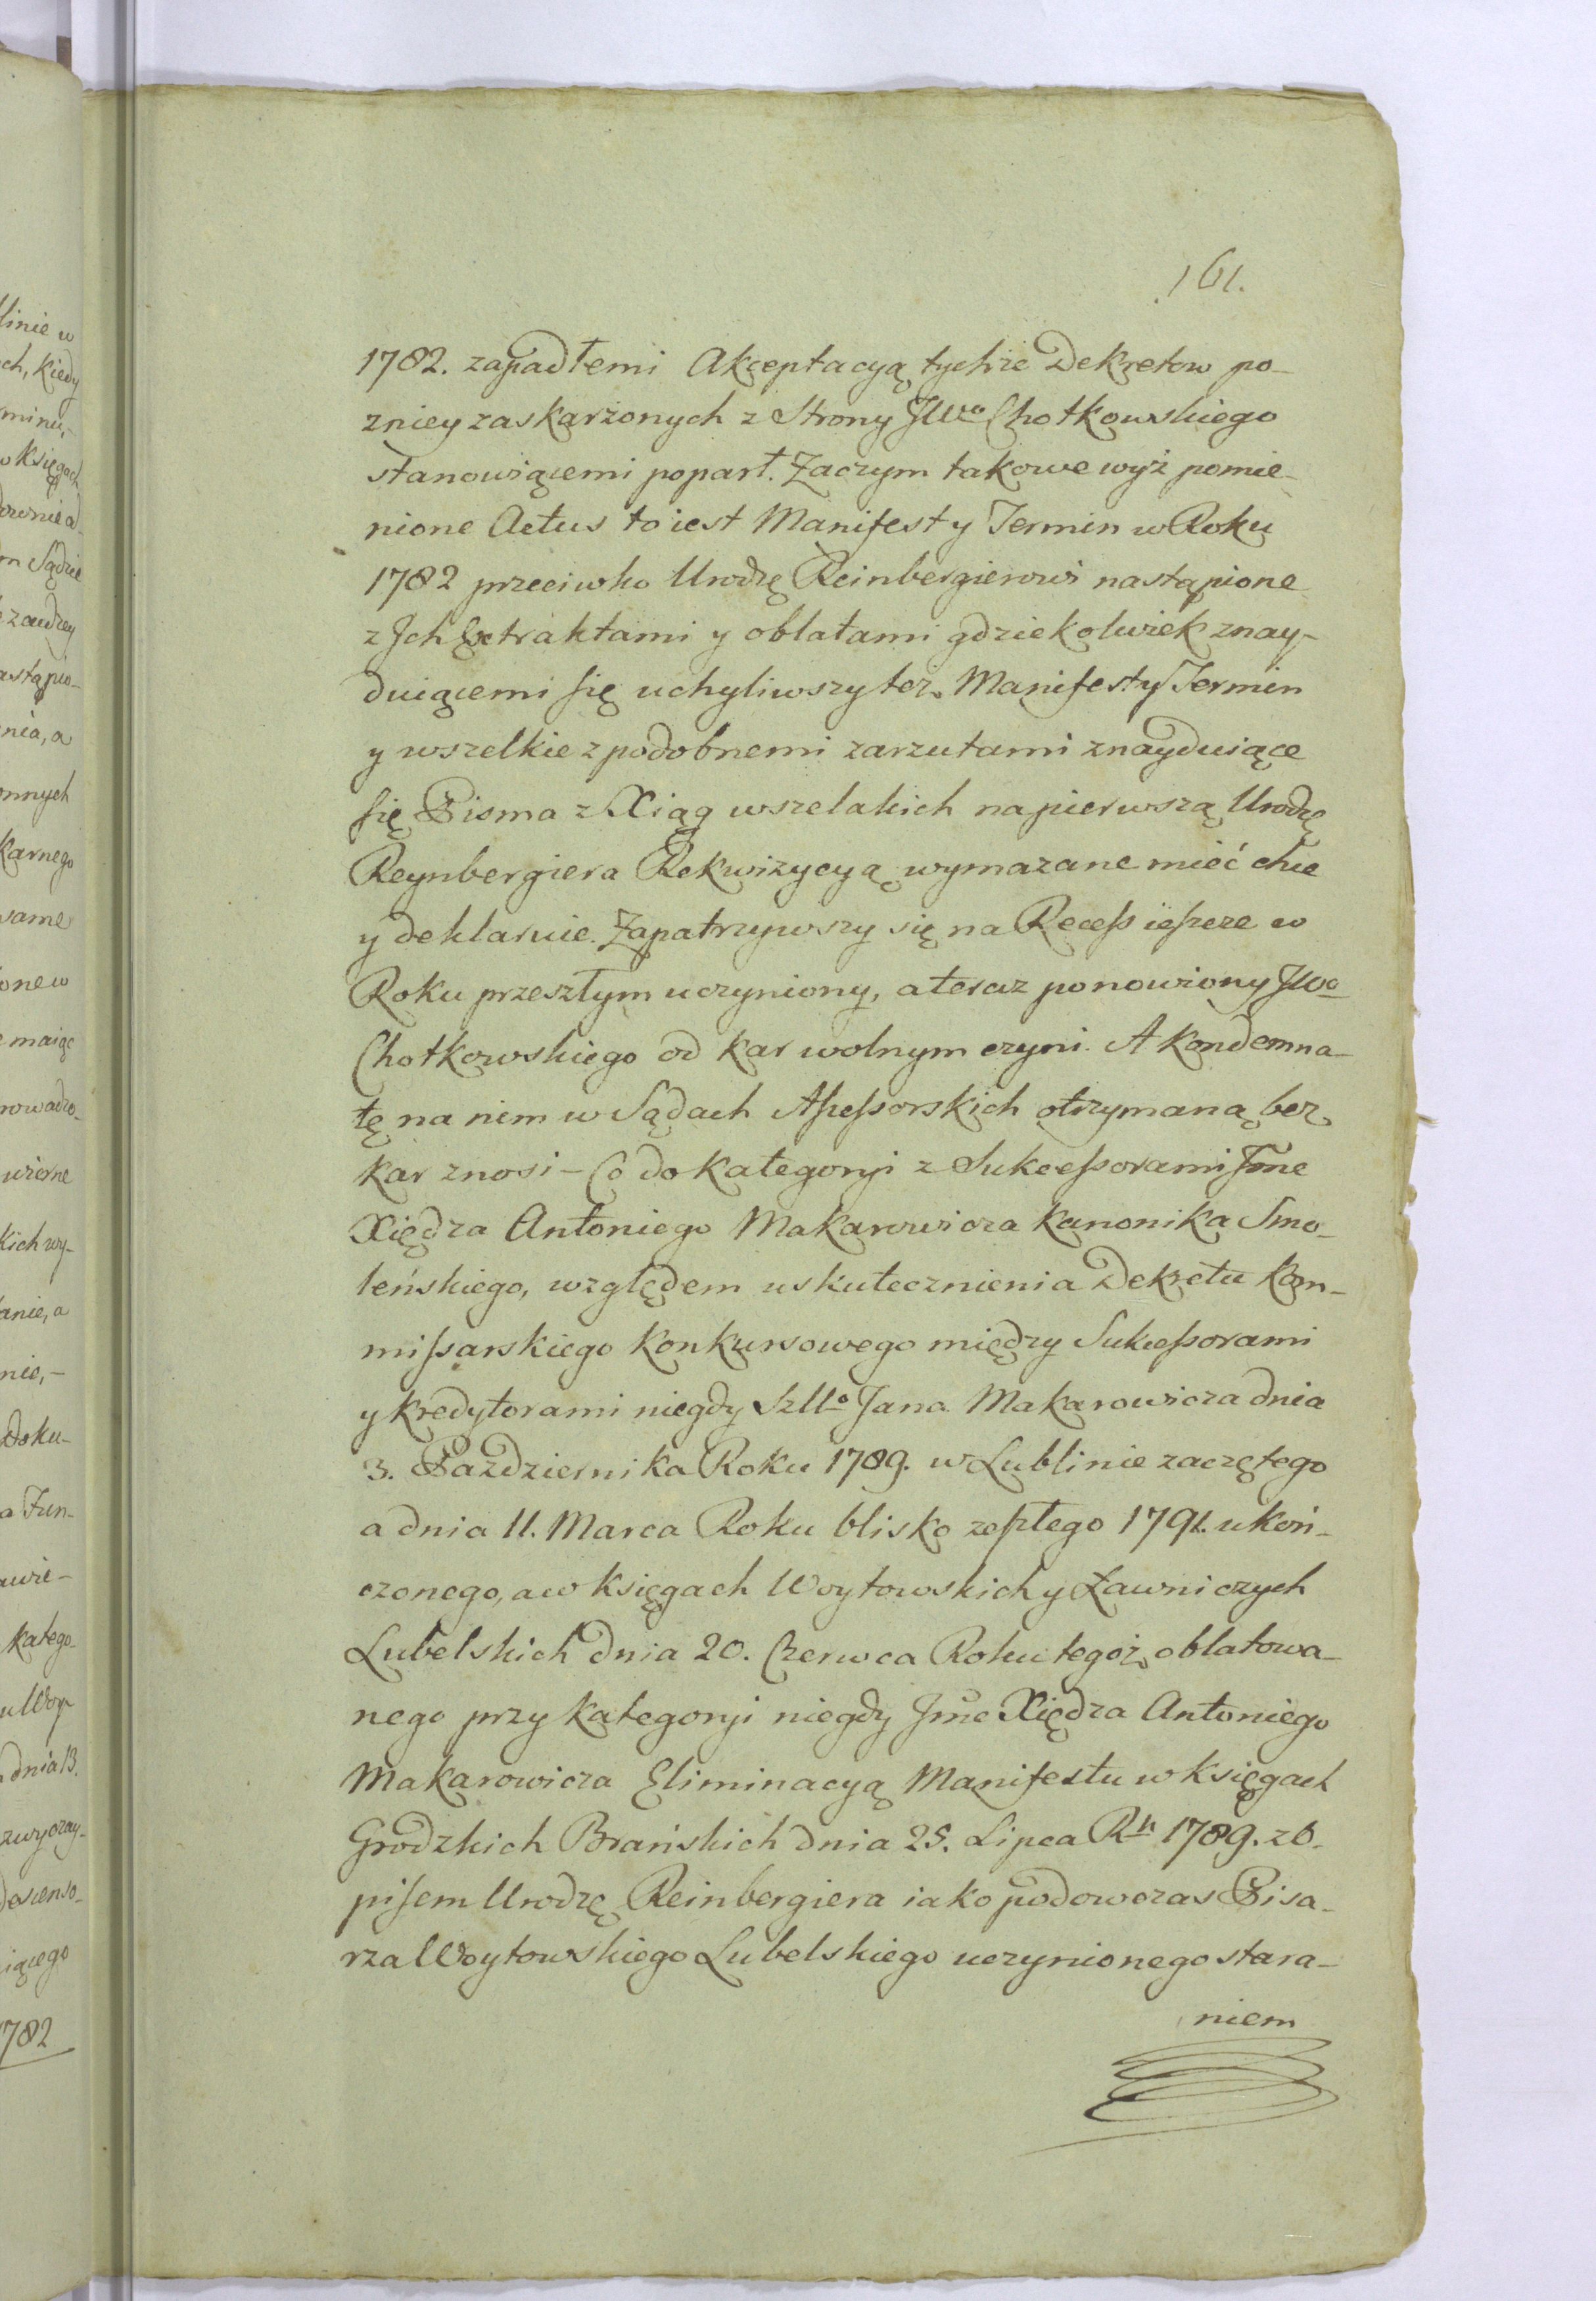 161.
1782. zapadłemi Akceptacyą tychże Dekretow po-
zniey zaskarżonych z Strony JWo Chotkowskiego
stanowiącemi poparł. Zaczym takowe wyż pomie-
nione Actus to iest Manifest y Termin w Roku
1782 przeciwko Urodzę Reinbergierowi nastąpione
z Jch Extraktami y oblatami gdziekolwiek znay-
duiącemi się uchyliwszy też Manifesty Termin
y wszelkie z podobnemi zarzutami znayduiące
się Pisma z Xiąg wszelakich na pierwszą Urodzę
Reynbergiera Rekwizycyą wymazane mieć chce
y deklaruie. Zapatrzywszy się na Recess ieszcze w
Roku przeszłym uczyniony, a teraz ponowiony JWo
Chotkowskiego od kar wolnym czyni. A Kondemna-
tę na nim w Sądach Assessorskich otrzymaną bez
kar znosi – Co do kategoryi z Sukcessorami Jmc
Xiędza Antoniego Makarowicza Kanonika Smo-
leńskiego, względem uskutecznienia Dekretu Kom-
missarskiego Konkursowego między Sukcessorami
y kredytorami niegdy Szllo Jana Makarowicza dnia
3. Pazdziernika Roku 1789. w Lublinie zaczętego
a dnia 11. Marca Roku blisko zeszłego 1791. ukoń-
czonego, a w księgach Woytowskich y Ławniczych
Lubelskich dnia 20. Czerwca Roku tegoż oblatowa-
nego przy kategoryi niegdy Jmc Xiędza Antoniego
Makarowicza Eliminacyą Manifestu w Księgach
Grodzkich Brańskich dnia 25. Lipca Rku 1789. z O-
pisem Urodzę Reinbergiera iako podowczas Pisa-
rza Woytowskiego Lubelskiego uczynionego stara-
niem